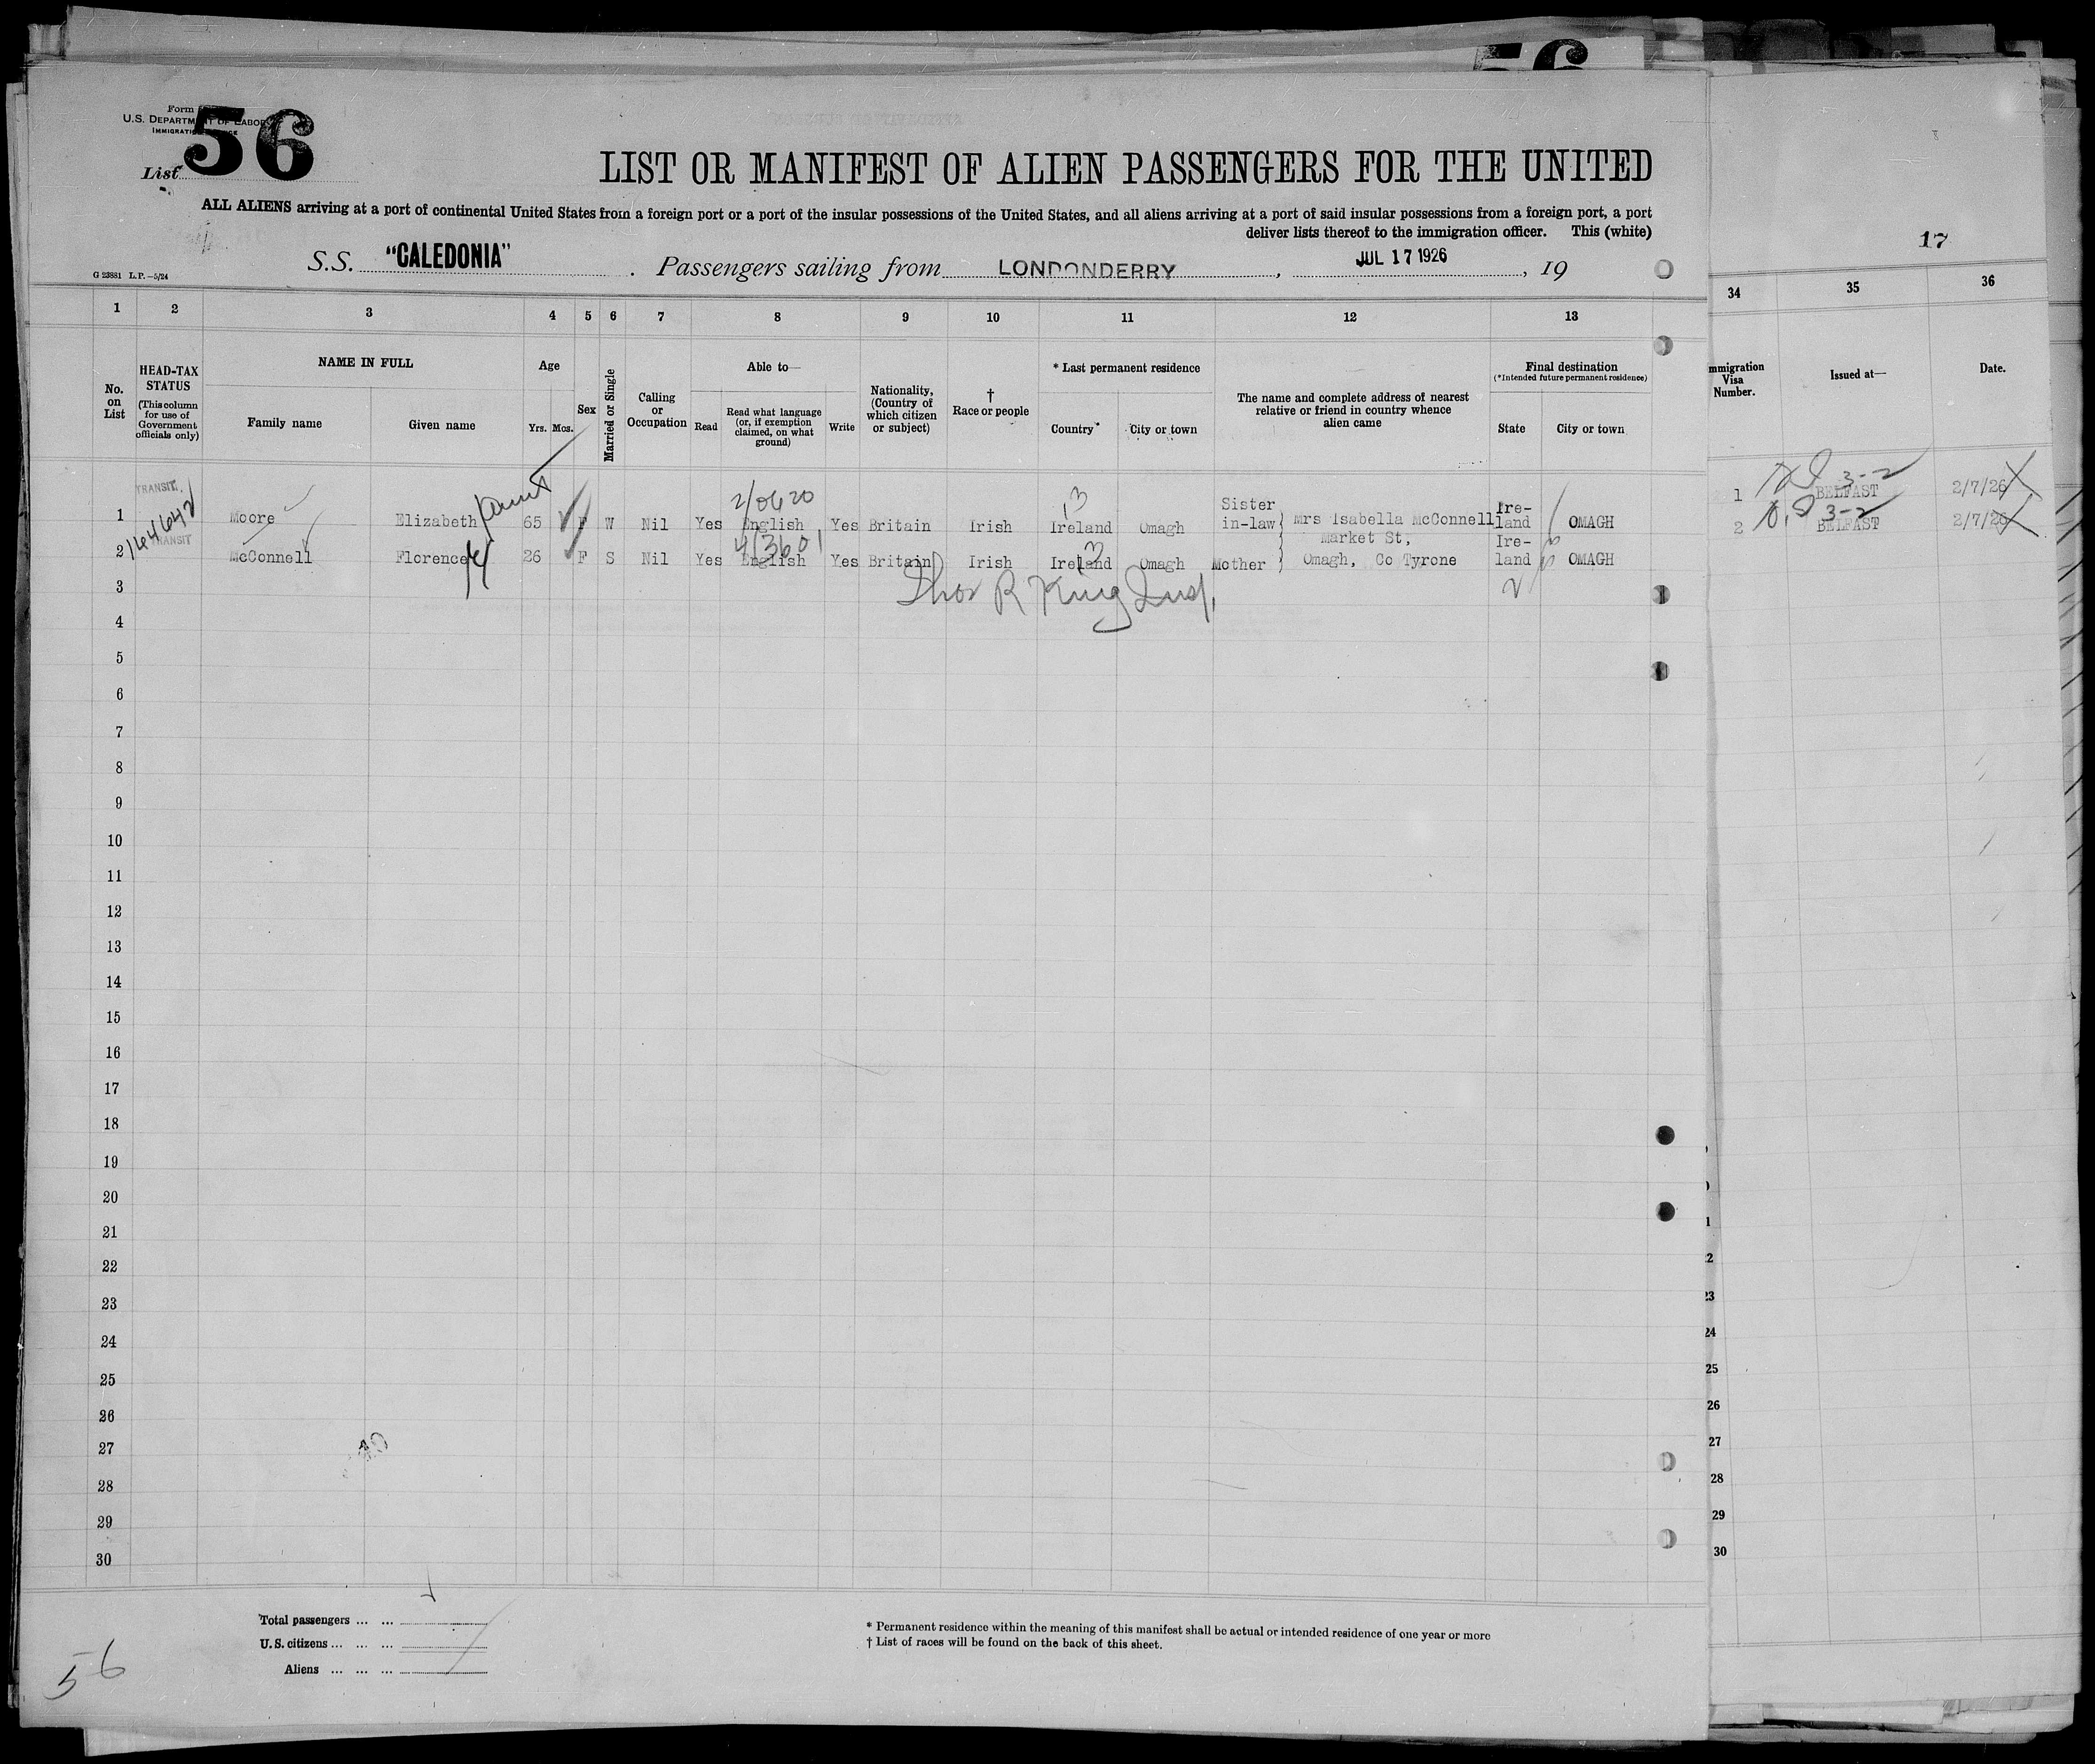 56
Form
U.S. DEPARTMENT OF LABOR
IMMIGRATION SERVICE
List 56
LIST OR MANIFEST OF ALIEN PASSENGERS FOR THE UNITED
ALL ALIENS arriving at a port of continental United States from a foreign port or a port of the insular possessions of the United States, and all aliens arriving at a port of said insular possessions from a foreign port, a port
deliver lists thereof to the immigration officer. This (white)
S.S. "CALEDONIA" . Passengers sailing from LONDONDERRY, JUL 17 1926, 19
G 23881 L.P.—5/24
17
1 2 3 4 5 6 7 8 9 10 11 12 13
34 35 36
No. on List
HEAD-TAX STATUS (This column for use of Government officials only)
NAME IN FULL
Family name Given name
Age
Yrs. Mos.
Sex
Married or Single
Calling or Occupation
Able to—
Read
Read what language (or, if exemption claimed, on what ground)
Write
Nationality, (Country of which citizen or subject)
† Race or people
* Last permanent residence
Country* City or town
The name and complete address of nearest relative or friend in country whence alien came
Final destination
(*Intended future permanent residence)
State City or town
mmigration Visa Number.
Issued at—
Date.
TRANSIT.
164642
aunt
2/0620
3
1 Moore Elizabeth 65 F W Nil Yes English Yes Britain Irish Ireland Omagh Sister in-law Mrs Isabella McConnell Ire-land OMAGH
1 3-2 BELFAST 2/7/26
TRANSIT
413601
Market St,
3
2 McConnell Florence 26 F S Nil Yes English Yes Britain Irish Ireland Omagh Mother Omagh, Co Tyrone Ire-land OMAGH
2 3-2 BELFAST 2/7/26
Thos R King Insp.
3
4
5
6
7
8
9
10
11
12
13
14
15
16
17
18
19
20
21
22
23
24
25
26
27
28
29
30
2
23
24
25
26
27
28
29
30
Total passengers ... ...
U.S. citizens ... ... ...
Aliens ... ... ...
* Permanent residence within the meaning of this manifest shall be actual or intended residence of one year or more
† List of races will be found on the back of this sheet.
56